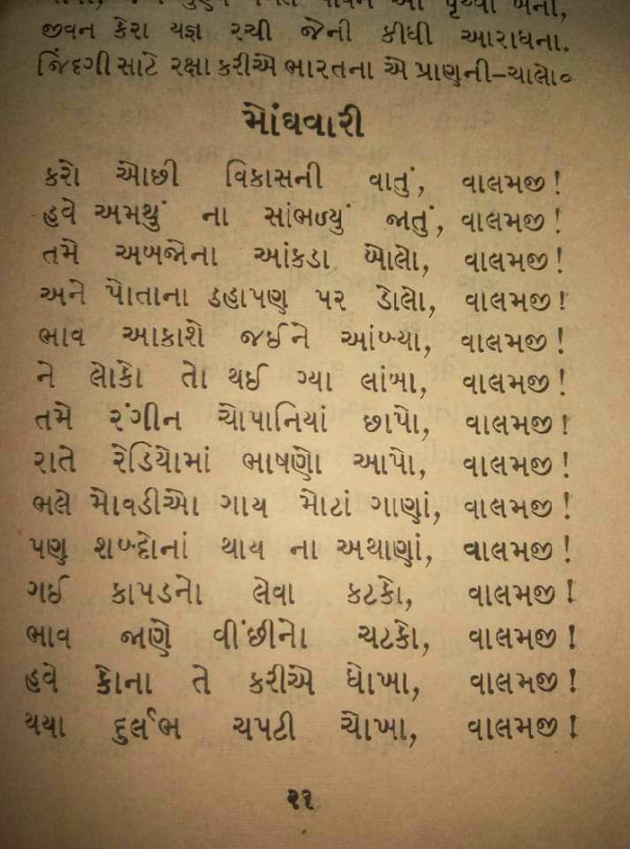 પાવન આ પૃથ્વી બની,
જીવન કેરા યજ્ઞ રચી જેની કીધી આરાધના.
જિંદગી સાટે રક્ષા કરીએ ભારતના એ પ્રાણની–ચાલો૦
મોંઘવારી
કરો ઓછી વિકાસની વાતું, વાલમજી!
હવે અમથું ના સાંભળ્યું જાતું, વાલમજી!
તમે અબજોના આંકડા બોલો, વાલમજી!
અને પોતાના ડહાપણ પર ડોલો, વાલમજી!
ભાવ આકાશે જઈને આંબ્યા, વાલમજી!
ને લોકો તો થઈ ગ્યા લાંબા, વાલમજી!
તમે રંગીન ચોપાનિયાં છાપો, વાલમજી!
રાતે રેડિયોમાં ભાષણો આપો, વાલમજી!
ભલે મોવડીઓ ગાય મોટાં ગાણાં, વાલમજી!
પણ શબ્દોનાં થાય ના અથાણાં, વાલમજી!
ગઈ કાપડનો લેવા કટકો, વાલમજી!
ભાવ જાણે વીંછીનો ચટકો, વાલમજી!
હવે કોના તે કરીએ ધોખા, વાલમજી!
થયા દુર્લભ ચપટી ચોખા, વાલમજી!
૨૧